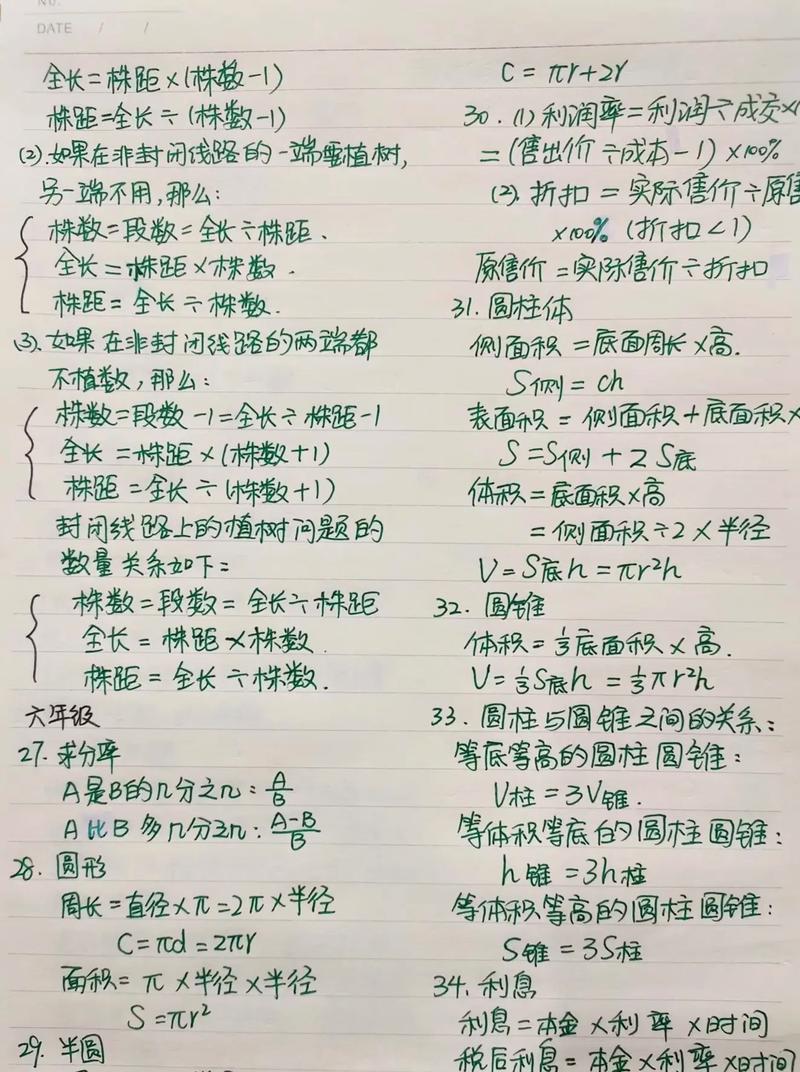 No.
DATE / /
全长=株距×(株数-1)
株距=全长÷(株数-1)
(2).如果在非封闭线路的一端要植树,
另一端不用,那么:
株数=段数=全长÷株距.
全长=株距×株数.
株距=全长÷株数.
(3).如果在非封闭线路的两端都
不植数,那么:
株数=段数-1=全长÷株距-1
全长=株距×(株数+1)
株距=全长÷(株数+1)
封闭线路上的植树问题的
数量关系如下:
株数=段数=全长÷株距
全长=株距×株数.
株距=全长÷株数.
六年级
27.求分率
A是B的几分之几:A/B
A比B多几分之几:(A-B)/B
28.圆形
周长=直径×π=2π×半径
C=πd=2πr
面积=π×半径×半径
S=πr²
29.半圆
C=πr+2r
30.(1)利润率=利润÷成交×
=(售出价÷成本-1)×100%
(2).折扣=实际售价÷原售
×100%(折扣<1)
原售价=实际售价÷折扣
31.圆柱体
侧面积=底面周长×高.
S侧=ch
表面积=侧面积+底面积×
S=S侧+2S底
体积=底面积×高
=侧面积÷2×半径
V=S底h=πr²h
32.圆锥
体积=⅓底面积×高.
V=⅓S底h=⅓πr²h
33.圆柱与圆锥之间的关系:
等底等高的圆柱圆锥:
V柱=3V锥.
等体积等底的圆柱圆锥:
h锥=3h柱
等体积等高的圆柱圆锥:
S锥=3S柱
34.利息
利息=本金×利率×时间
税后利息=本金×利率×时间